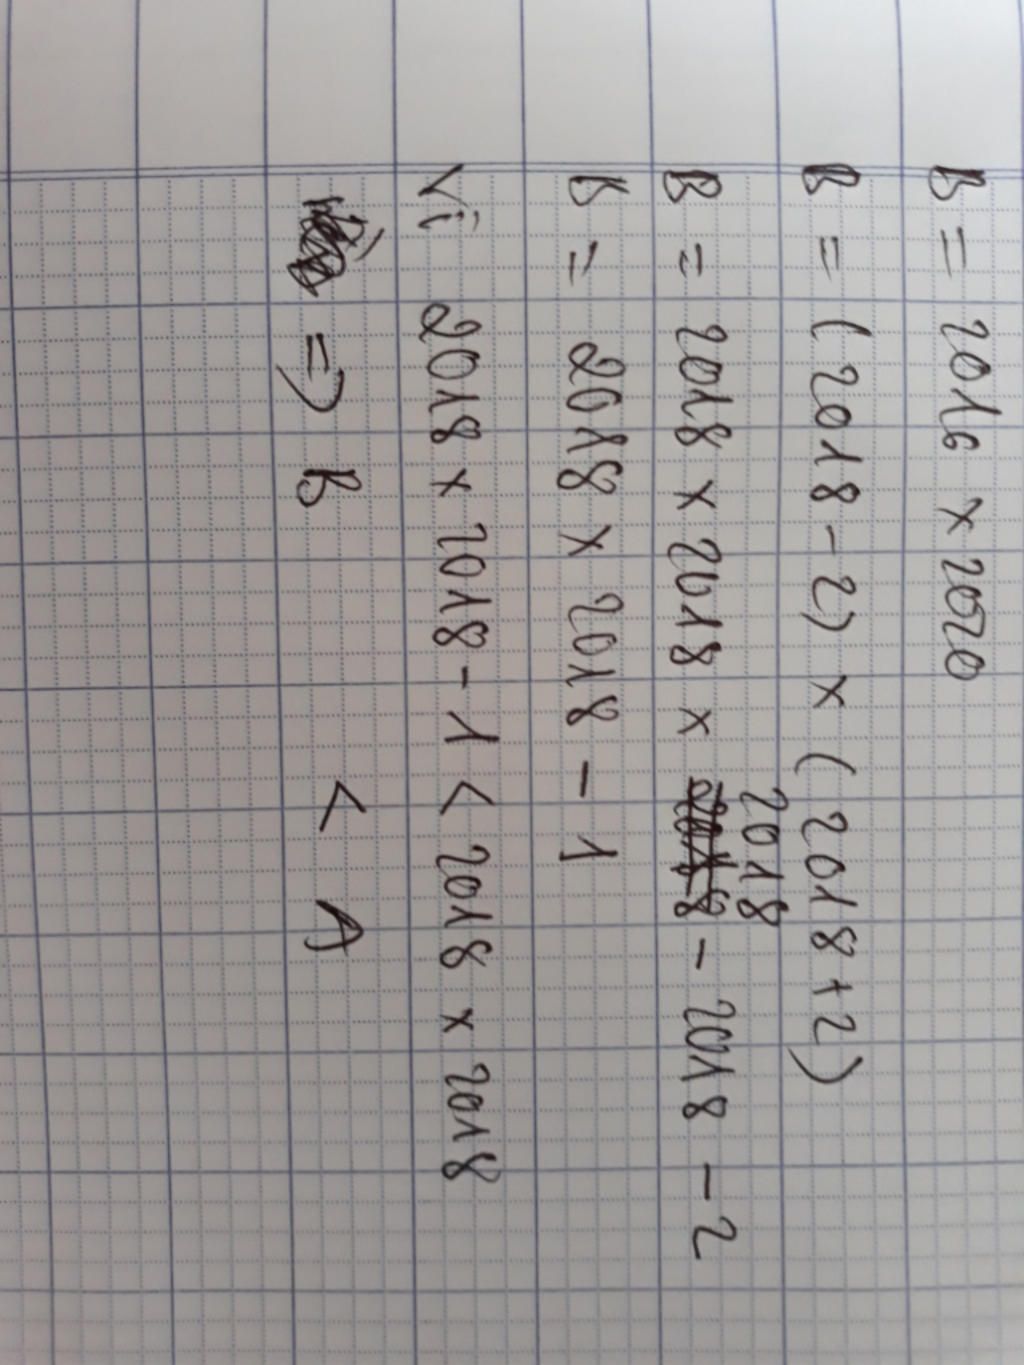 B = 2016 x 2020
B = (2018 - 2) x (2018 + 2)
2018
B = 2018 x 2018 x - 2018 - 2
B = 2018 x 2018 - 1
Vì 2018 x 2018 - 1 < 2018 x 2018
=> B < A